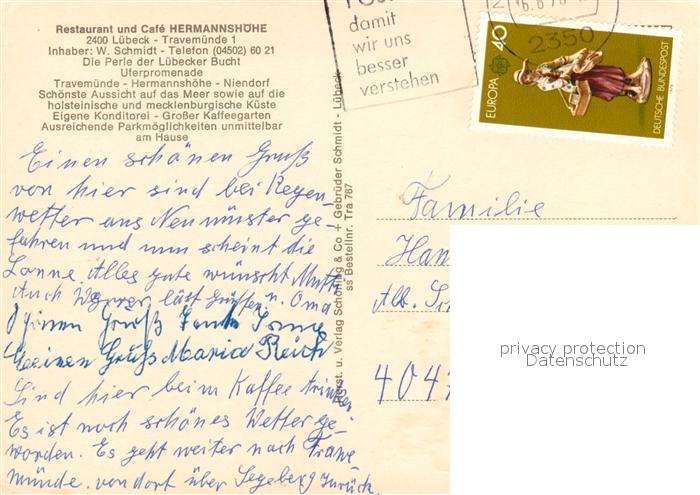 Restaurant und Café HERMANNSHÖHE
2400 Lübeck - Travemünde 1
Inhaber: W. Schmidt - Telefon (04502) 60 21
Die Perle der Lübecker Bucht
Uferpromenade
Travemünde - Hermannshöhe - Niendorf
Schönste Aussicht auf das Meer sowie auf die
holsteinische und mecklenburgische Küste
Eigene Konditorei - Großer Kaffeegarten
Ausreichende Parkmöglichkeiten unmittelbar
am Hause
Einen schönen Gruß
von hier sind bei Regen-
wetter aus Neumünster ge-
fahren und nun scheint die
Sonne. Alles gute wünscht Mutti
u. Oma
Auch Werner läst Grüßen
Gruß
einen Gruß Maria Reich
Sind hier beim Kaffee trinken
Es ist noch schönes Wetter ge-
worden. Es geht weiter nach Trawe-
münde. von dort über Segeberg zurück.
Herst. u. Verlag Schöning & Co + Gebrüder Schmidt - Lübeck
ss Bestellnr. Tra 787
damit
wir uns
besser
verstehen
2350
EUROPA
40
DEUTSCHE BUNDESPOST
Familie
Han
Alb.
404
privacy protection
Datenschutz